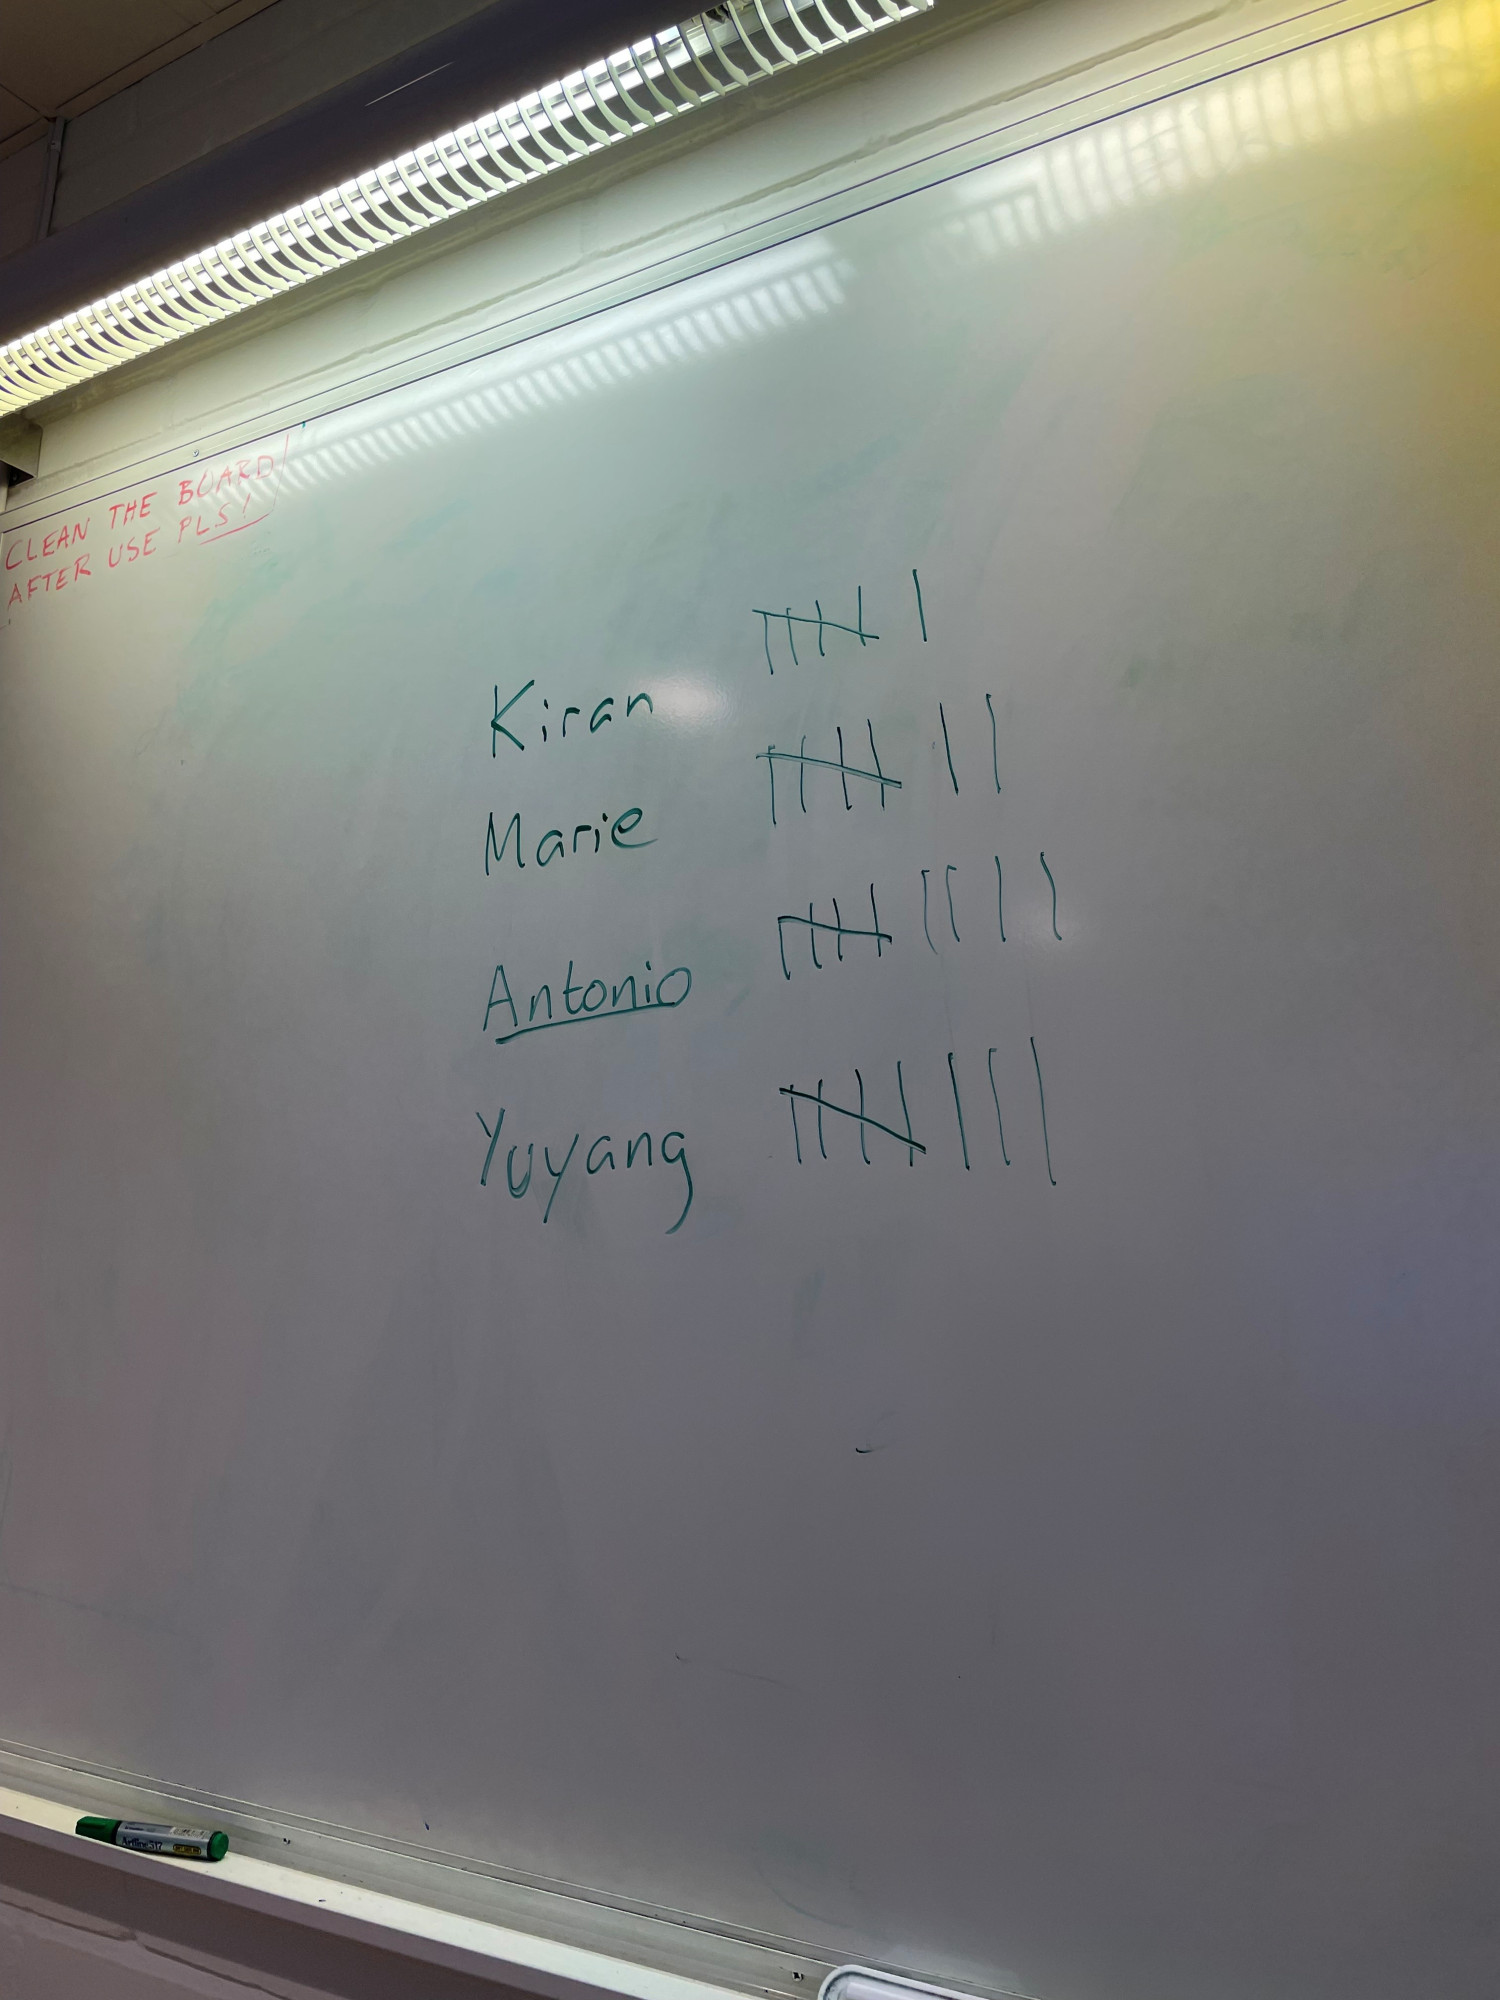 CLEAN THE BOARD!
AFTER USE PLS!
Kiran
Marie
Antonio
Yuyang
Artline 517